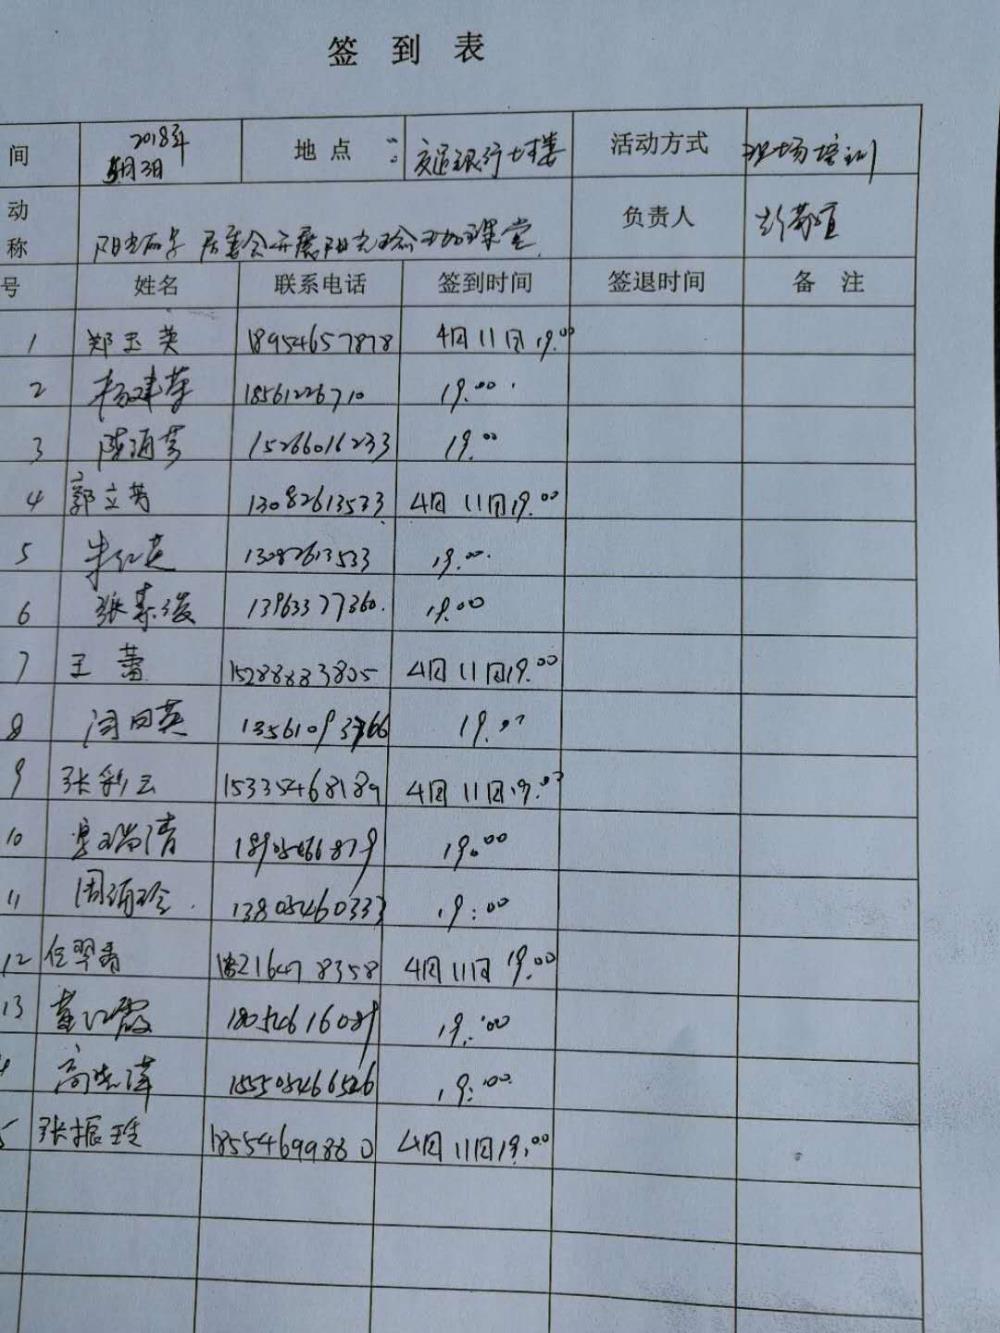 签到表
间 2018年 月3日 地点 : 交通银行七楼 活动方式 现场培训
动
称 阳光 居委会开展阳光瑜伽课堂 负责人 彭
号 姓名 联系电话 签到时间 签退时间 备注
1 郑玉英 18954657878 4月11日19.00
2 杨建华 18561226710 19.00
3 陈 芳 15266016233 19.00
4 郭立芳 13082613533 4月11日19.00
5 朱红英 13082613533 19.00
6 张寿俊 13963377360 19.00
7 王蕾 15288833805 4月11日19.00
8 闫日英 13561093766 19.00
9 张彩云 15335468189 4月11日19.00
10 瑞清 18905466879 19.00
11 周 玲 13805460333 19:00
12 任翠青 18216478358 4月11日19.00
13 董江霞 18054616089 19:00
4 高 萍 15505466526 19:00
5 张振 18554699880 4月11日19:00